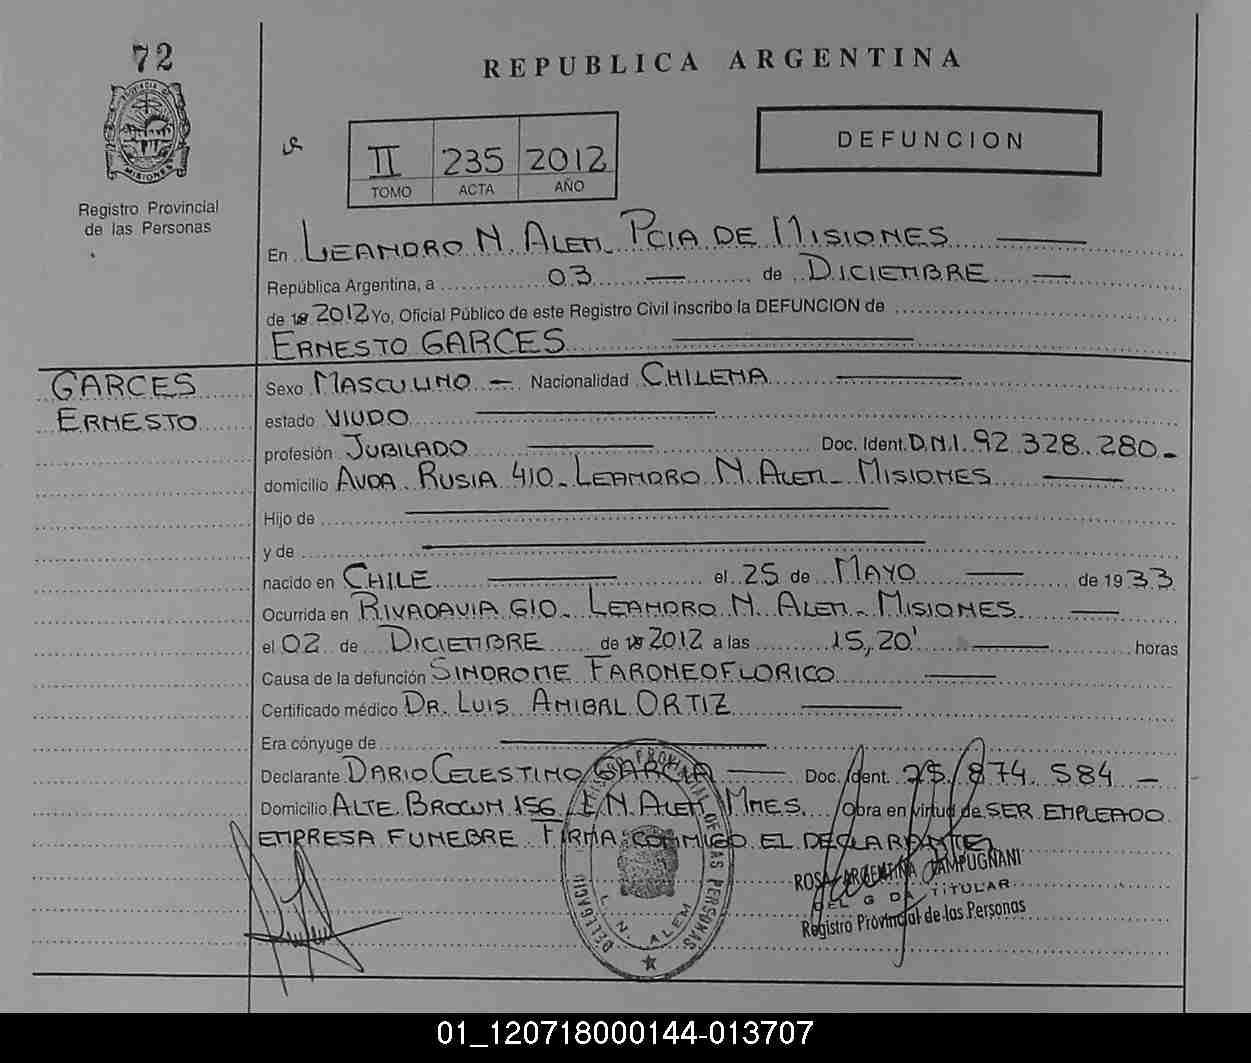 72
REPUBLICA ARGENTINA
PROVINCIA DE
MISIONES
Registro Provincial
de las Personas
II 235 2012
TOMO ACTA AÑO
DEFUNCION
En LEANDRO N. ALEM PCIA DE MISIONES
República Argentina, a 03 de DICIEMBRE
de 2012 Yo, Oficial Público de este Registro Civil inscribo la DEFUNCION de
ERNESTO GARCES
GARCES
ERNESTO
Sexo MASCULINO - Nacionalidad CHILENA
estado VIUDO
profesión JUBILADO Doc. Ident. D.N.I. 92.328.280-
domicilio AVDA RUSIA 410_ LEANDRO N. ALEM_ MISIONES
Hijo de
y de
nacido en CHILE el 25 de MAYO de 1933
Ocurrida en RIVADAVIA 610_ LEANDRO N. ALEM_ MISIONES
el 02 de DICIEMBRE de 2012 a las 15,20' horas
Causa de la defunción SINDROME FARONEOFLORICO
Certificado médico DR. LUIS ANIBAL ORTIZ
Era cónyuge de
Declarante DARIO CELESTINO GARCIA Doc. Ident. 25.874.584 -
Domicilio ALTE. BROWN 156_ L.N. ALEM MNES. Obra en virtud de SER EMPLEADO
EMPRESA FUNEBRE. FIRMA CONMIGO EL DECLARANTE
PROVINCIAL DE LAS PERSONAS
DELEGACION
L. N. ALEM
ROSA ARGENTINA TAMPUGNANI
TITULAR
Registro Provincial de las Personas
01_120718000144-013707